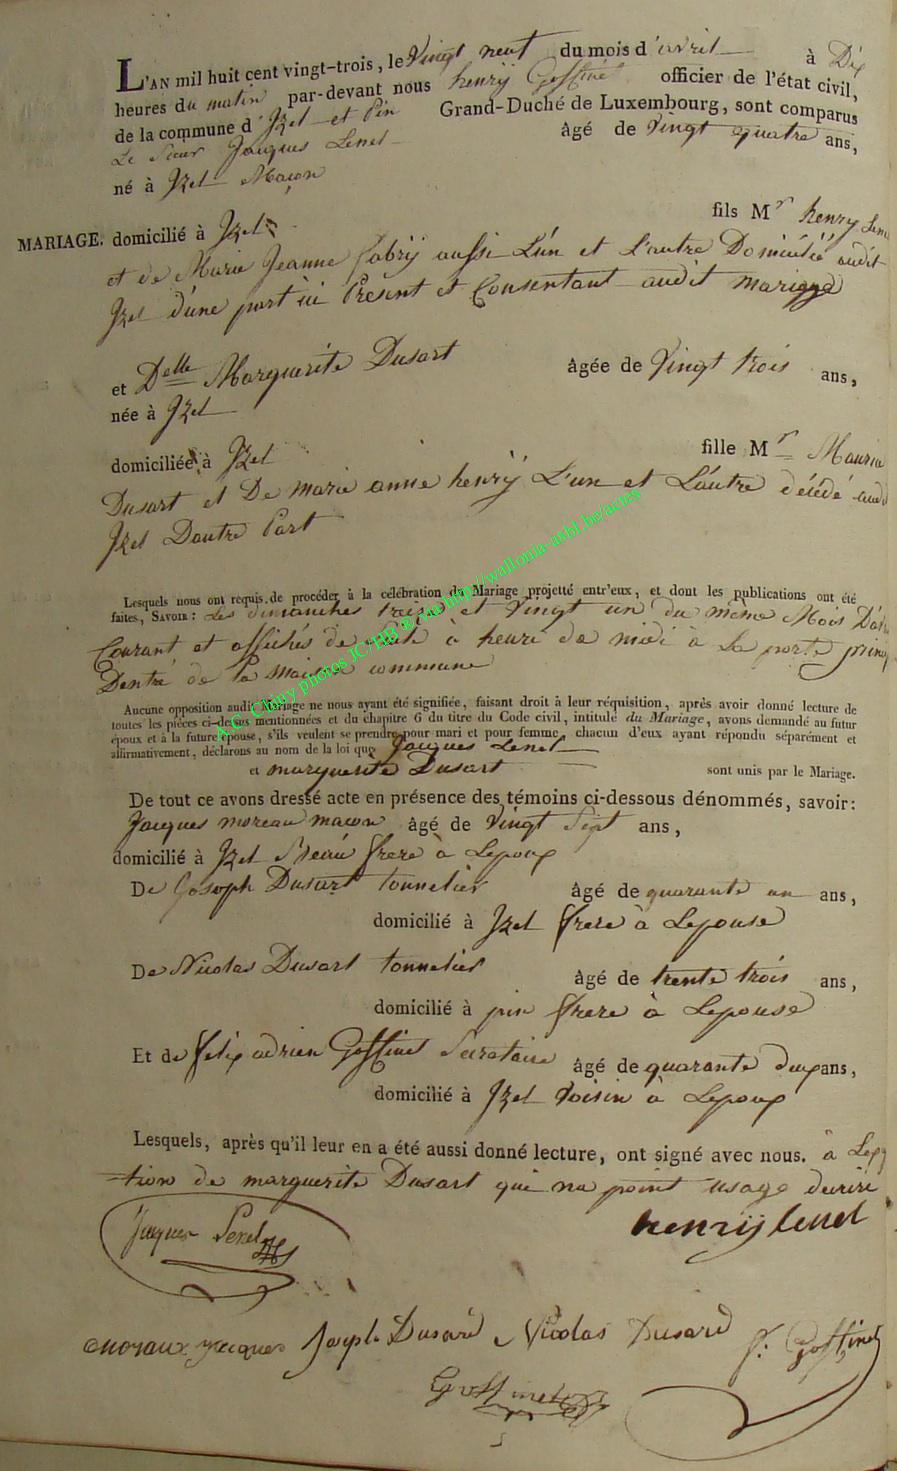 L'AN mil huit cent vingt-trois, le Vingt neuf du mois d'avril à Dix
heures du matin par-devant nous henrij Goffinet officier de l'état civil,
de la commune d'Izel et Pin Grand-Duché de Luxembourg, sont comparus
Le Sieur Jacques Lenel âgé de Vingt quatre ans,
né à Izel Maçon
fils Mr henry Lenel
MARIAGE. domicilié à Izel
et de Marie Jeanne fabrij aussi L'un et L'autre Domicilié audit
Izel d'une part ici Present et Consentant audit mariage
et Delle Marguerite Dusart âgée de Vingt trois ans,
née à Izel
domiciliée à Izel fille Mr Maurice
Dusart et De marie anne henrij L'un et L'autre décédé audit
Izel Dautre Part
Lesquels nous ont requis de procéder à la célébration du Mariage projetté entr'eux, et dont les publications ont été
faites, SAVOIR: Les dimanches treise et Vingt un du même Mois D'avril
Courant et affichés de suite à heure de midi à La porte princip
Dentré de La maison commune
Aucune opposition audit Mariage ne nous ayant été signifiée, faisant droit à leur réquisition, après avoir donné lecture de
toutes les pièces ci-dessus mentionnées et du chapitre 6 du titre du Code civil, intitulé du Mariage, avons demandé au futur
époux et à la future épouse, s'ils veulent se prendre pour mari et pour femme, chacun d'eux ayant répondu séparément et
affirmativement, déclarons au nom de la loi que Jacques Lenel
et marguerite Dusart sont unis par le Mariage.
De tout ce avons dressé acte en présence des témoins ci-dessous dénommés, savoir:
Jacques moreau macon âgé de Vingt Sept ans,
domicilié à Izel Beau frere à Lepoux
De Joseph Dusart tonnelier âgé de quarante un ans,
domicilié à Izel frere à Lepouse
De Nicolas Dusart tonnelier âgé de trente trois ans,
domicilié à pin frere à Lepouse
Et de felix adrien Goffinet Secretaire âgé de quarante deux ans,
domicilié à Izel Voisin à Lepoux
Lesquels, après qu'il leur en a été aussi donné lecture, ont signé avec nous. à Lexp
tion de marguerite Dusart qui na point usage decrire
Jacques Lenel henrij lenel
moraux jacques Joseph Dusard Nicolas Dusard f: Goffinet
Goffinet
A.G. Chiny photos JC/HB & via http://wallonia-asbl.be/actes